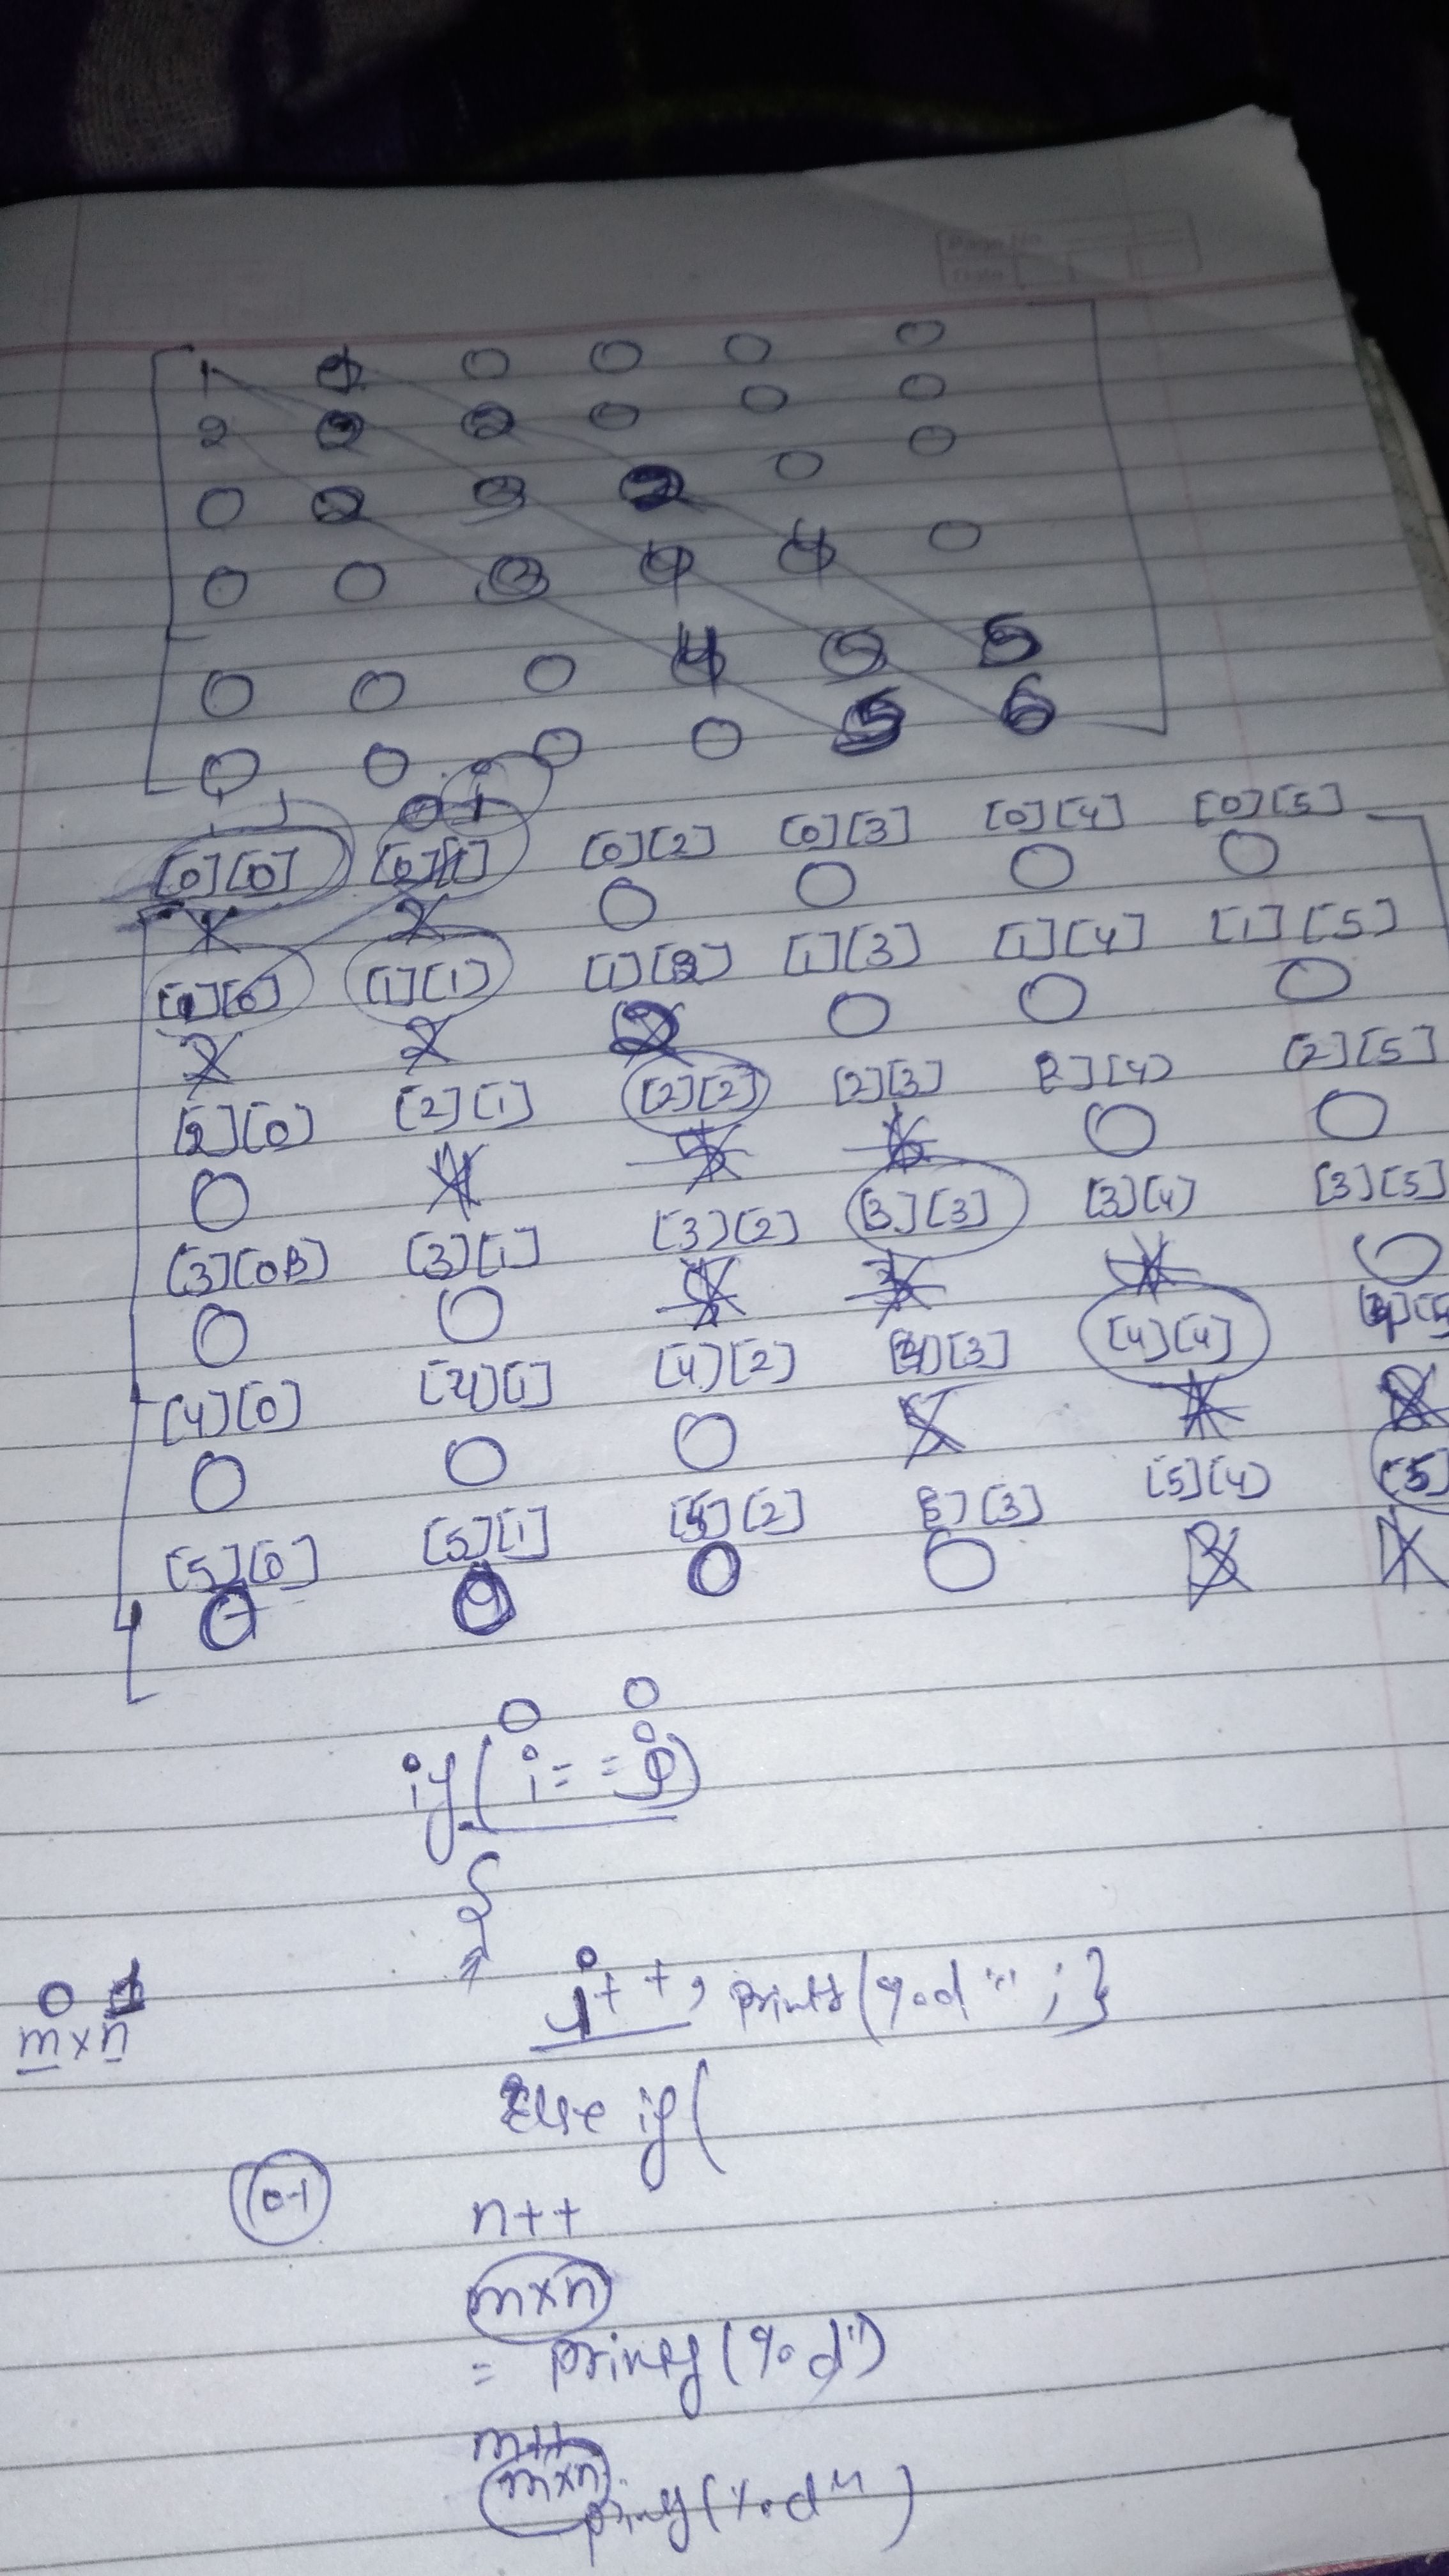 Page No
Date
1 1 0 0 0 0
2 2 2 0 0 0
0 2 3 2 0 0
0 0 3 4 4 0
0 0 0 4 5 5
0 0 0 0 5 6
i j
[0][0] [0][1] [0][2] [0][3] [0][4] [0][5]
0 0 0 0
[1][0] [1][1] [1][2] [1][3] [1][4] [1][5]
2 2 2 0 0 0
[2][0] [2][1] [2][2] [2][3] 2][4] [2][5]
0 0 0
[3][0B] [3][1] [3][2] [3][3] [3][4] [3][5]
0 0 0
[4][0] [4][1] [4][2] [4][3] [4][4]
0 0 0
[5][0] [5][1] [5][2] 5][3] [5][4] [5]
0 0 0 0
0 0
if(i==j)
{
j++, printf(%d"" ; }
0 1
m×n
else if(
0-1
n++
m×n
= printf(%d")
m++
m×n
printf(%d")